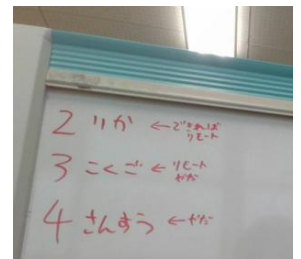 2 りか ←できれば
リモート
3 こくご ← リモート
やだ
4 さんすう ←やだ